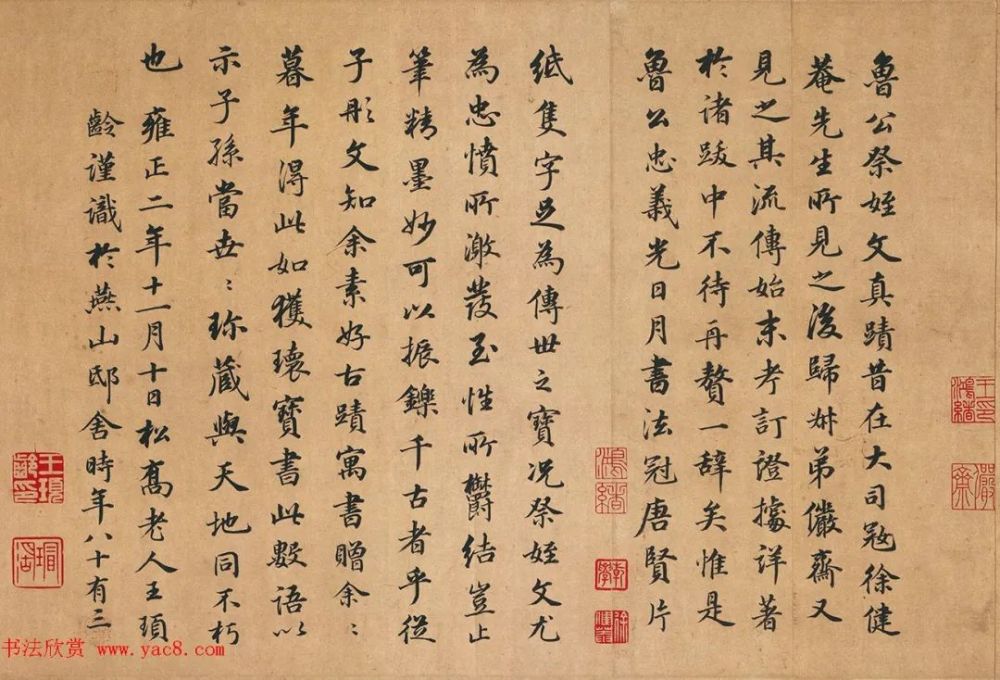 魯公祭姪文真蹟昔在大司寇徐健
菴先生所見之後歸㭍弟儼齋又
見之其流傳始末考訂證據詳著
於諸跋中不待再贅一辭矣惟是
魯公忠義光日月書法冠唐賢片
紙隻字足為傳世之寶況祭姪文尤
為忠憤所激發至性所欝結豈止
筆精墨妙可以振鑠千古者乎從
子彤文知余素好古蹟寓書贈余〻
暮年得此如獲瓌寶書此數語以
示子孫當世〻珎藏與天地同不朽
也 雍正二年十一月十日松髙老人王頊
齡謹識於燕山邸舍時年八十有三
王頊齡印
書法欣赏 www.yac8.com